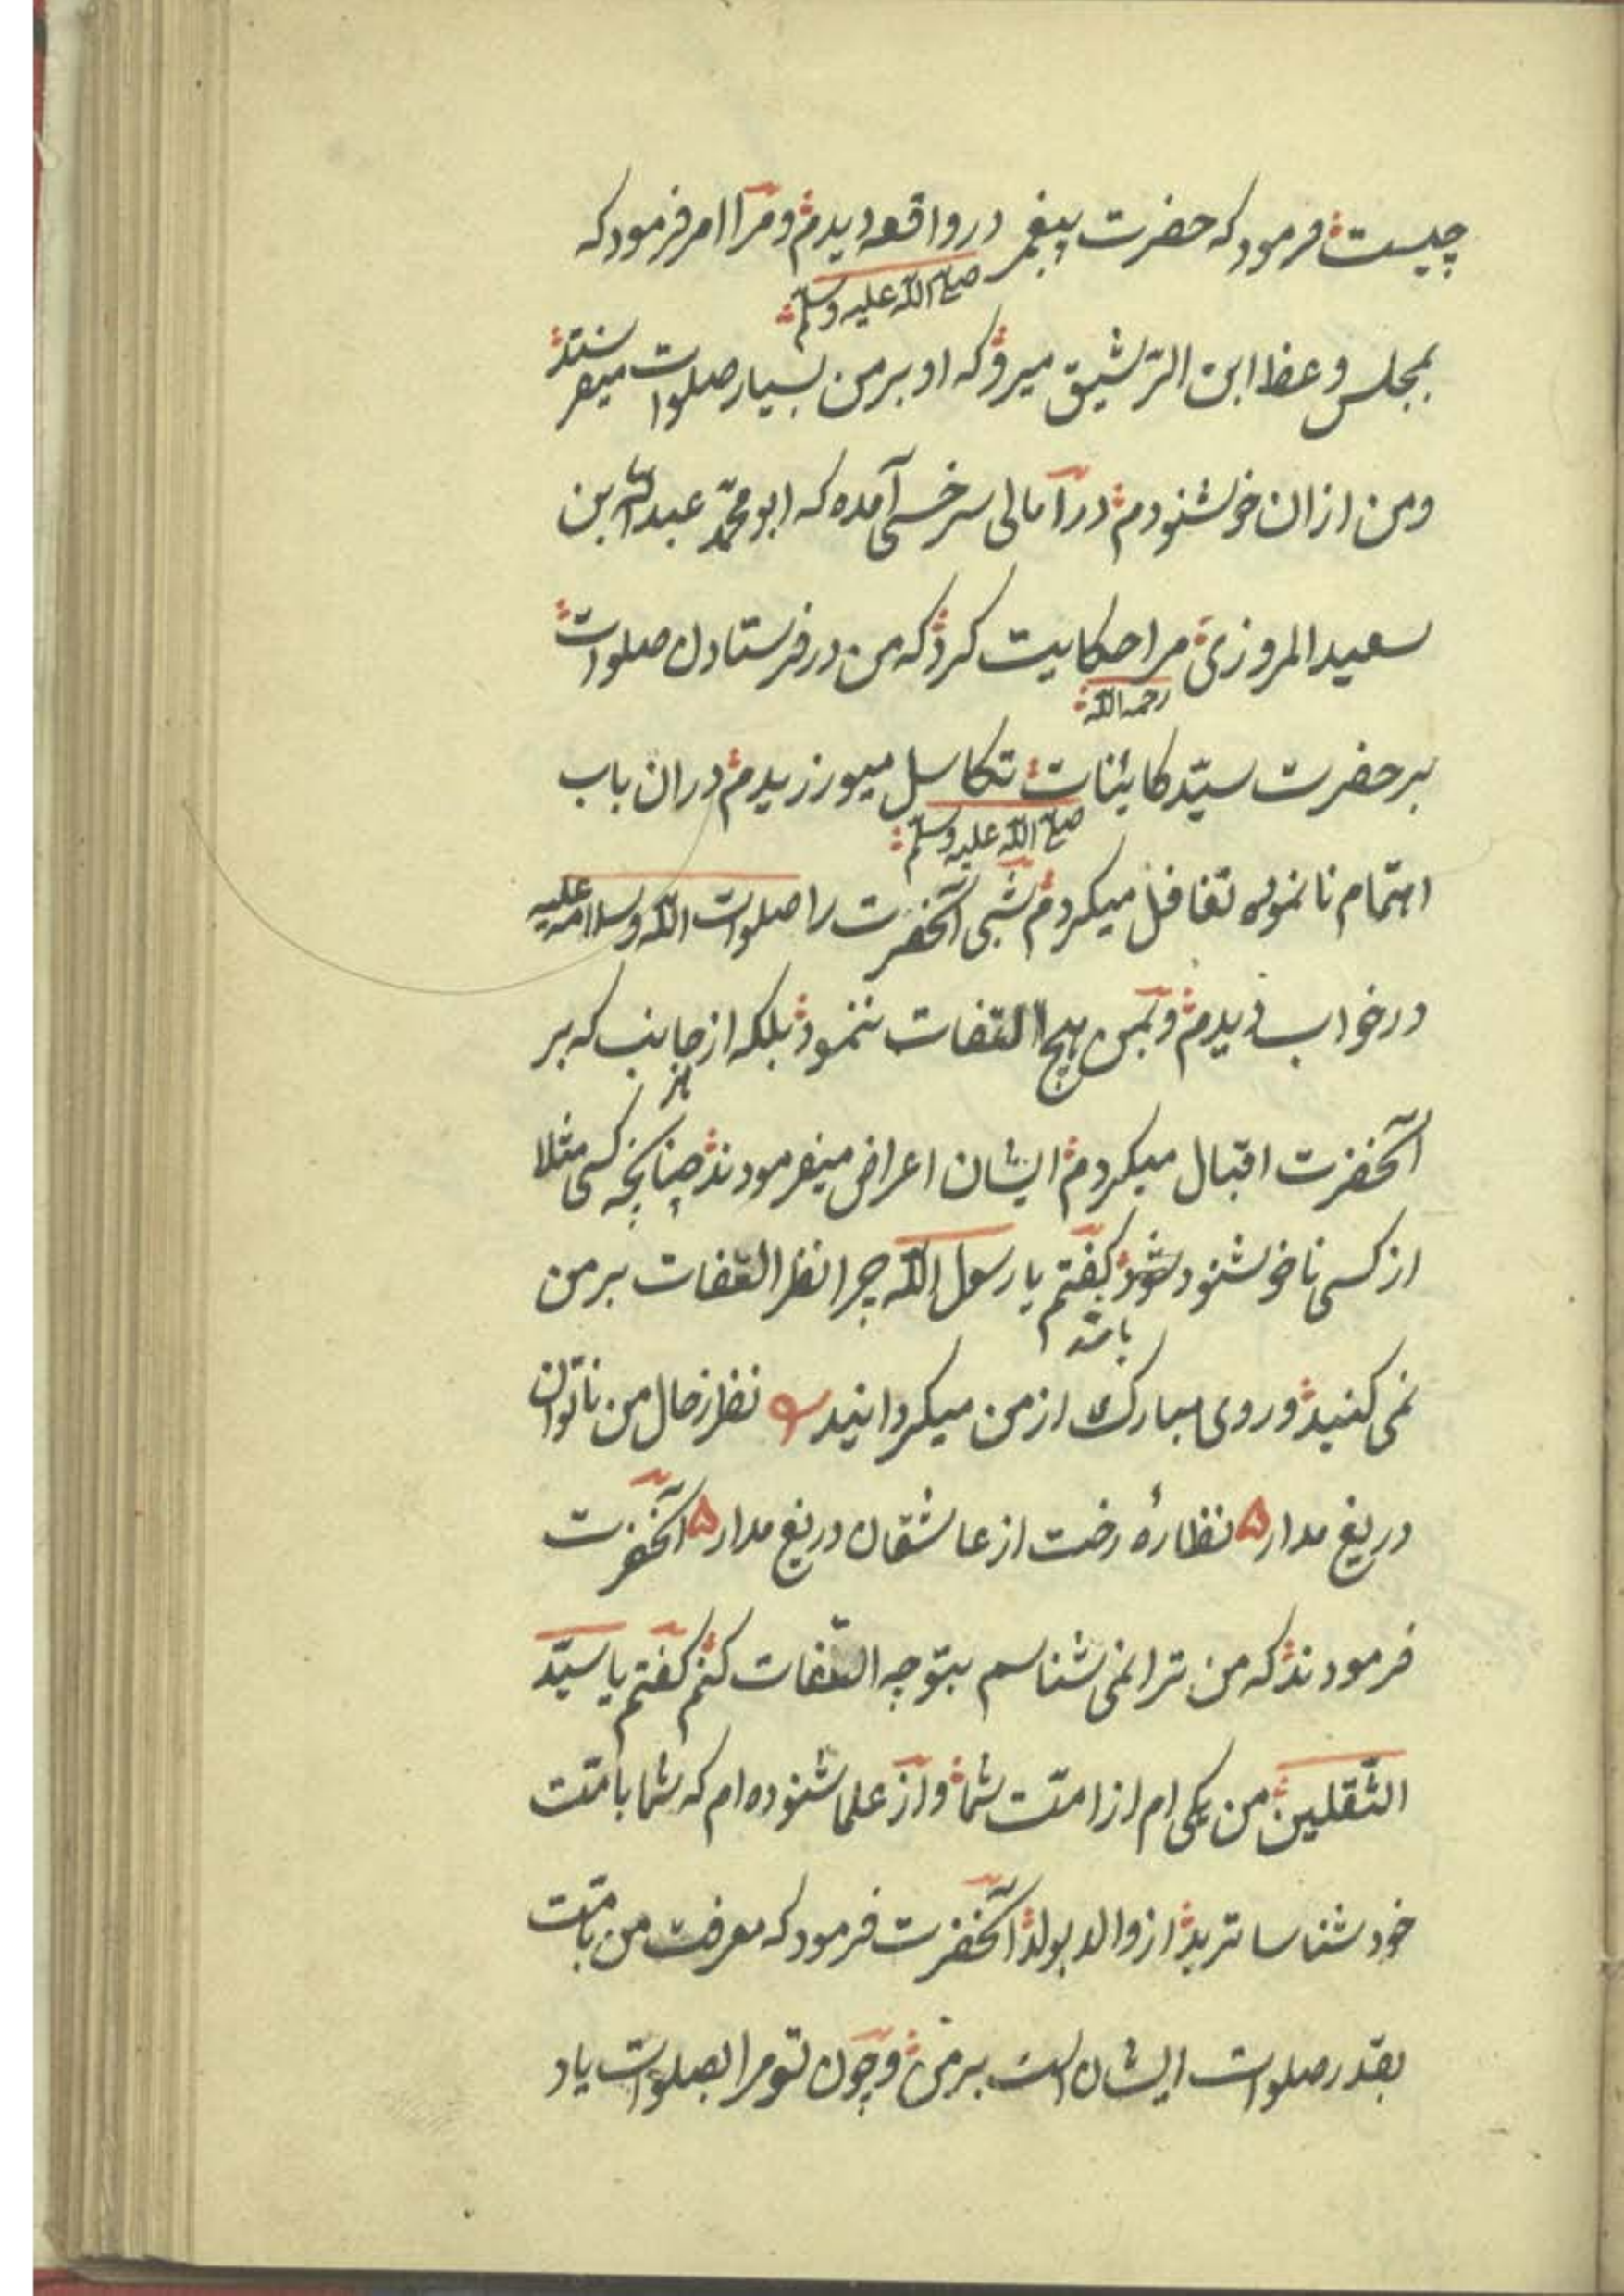 چیست فرمود که حضرت پیغمبر در واقعه دیدم و مرا امر فرمود که
صلی الله علیه وسلم
بمجلس وعظ ابن الرشیق میرو که او بر من بسیار صلوات میفرستد
ومن ازان خوشنودم در آمالی سرخسی آمده که ابو محمّد عبدالله بن
سعید المروزی مرا حکایت کرد که من در فرستادن صلوات
رحمه الله
بر حضرت سیّد کاینات تکاسل میورزیدم دران باب
صلی الله علیه وسلم
اهتمام نانموده تغافل میکردم شبی آنحضرت را صلوات الله وسلامه علیه
در خواب دیدم و بمن هیچ التفات ننمود بلکه از جانب که بر
هر
آنحضرت اقبال میکردم ایشان اعراض میفرمودند چنانچه کسی مثلا
از کسی ناخوشنود شود گفتم یا رسول الله چرا نظر التفات بر من
باشد
نمی کنید و روی مبارک از من میگردانید نظر ز حال من ناتوان
دریغ مدار ۵ نظارهٔ رخت از عاشقان دریغ مدار ۵ آنحضرت
فرمودند که من ترا نمی شناسم بتو چه التفات کنم گفتم یا سیّد
الثّقلین من یکی ام از امّت شما و از علما شنوده ام که شما بامّت
خود شناساترید از والد بولد آنحضرت فرمود که معرفت من بامّت
بقدر صلوات ایشان است بر من و چون تو مرا بصلوات یاد